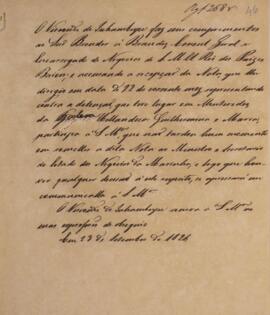 O Visconde de Inhambupe faz seus comprimentos
ao Snr. Brender à Brandis, Consul Geral e
Encarregado de Negocios de S. M. El Rei dos Paizes
Baixos, e accusando a recepção da Nota, que lhe
dirigio em data de 22 do corrente mez representando
contra a detenção, que teve lugar em Montevideo
da Hollandeza Guilhermina e Maria,
participa a S. Mce. que não tardou hum momento
em remetter a dita Nota ao Ministro e Secretario
de Estado dos Negocios da Marinha, e logo que houver
qualquer decisão a este respeito, se apressará em
communicalla a S. Mce.
O Visconde de Inhambupe renova a S. Mce. as
suas expressões de obsequio
Em 23 de Setembro de 1826